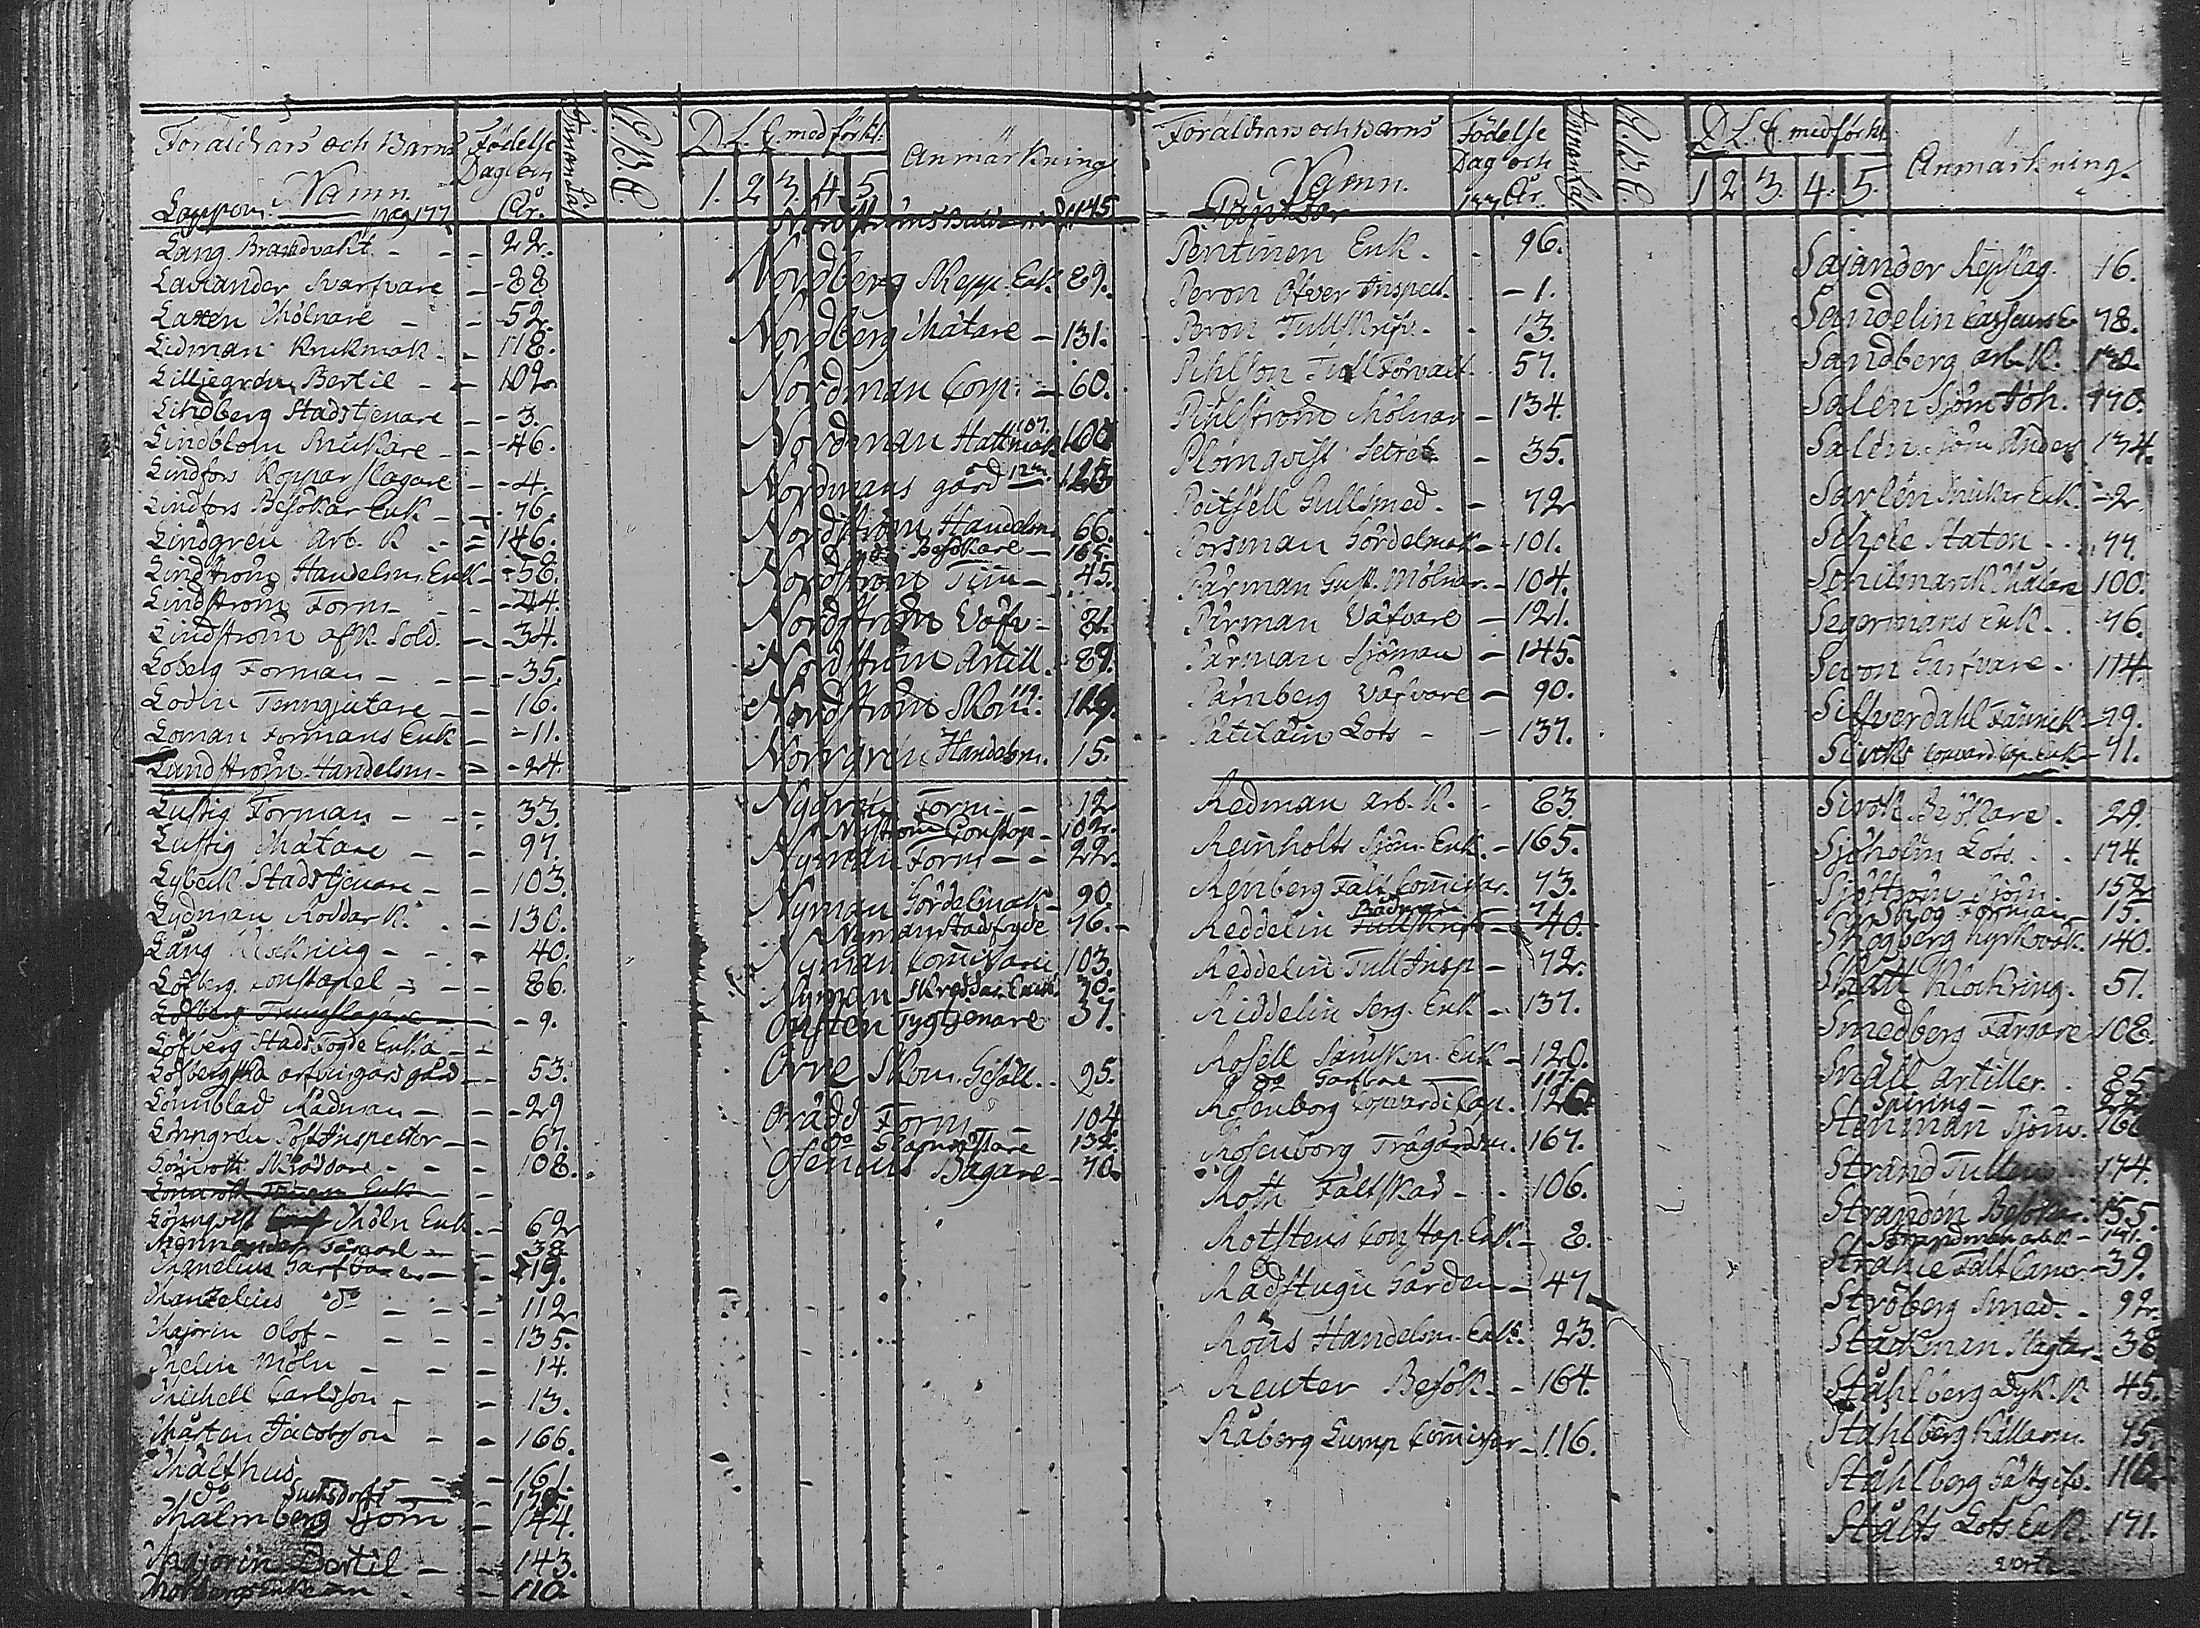 Föräldrars och Barns
Namn.
Födelse
Dag och
År.
D. L. C. med förkl.
1. 2 3. 4. 5
Anmärkning
Lang. Brandvakt. - - 22.
Lavlander Svarfvare - 88
Laxen Mölnare - - 52.
Lidman Krukmak. - 118.
Lilliegren Bertil - - 102
Lindberg Stadstjenare - 3.
Lindblom Snickare - 46.
Lindfors Kopparslagare - 4.
Lindfors Besökar Enk. - 76.
Lindgren Arb. K. - 146.
Lindström Handelsm. Enk. - 58.
Lindström Form. - 44.
Lindström afsk. Sold. - 34.
Loberg Forman - - 35.
Lodin Tenngjutare - 16.
Loman Formans Enk - 11.
Lundström Handelsm. - 24.
Lustig Forman - - 33.
Lustig Mätare - - 97.
Lybeck Stadstjenare - 103.
Lydman Roddar K. - 130.
Lång Klockring - - 40.
Löfberg Constapel - - 86.
Löfberg Trumslagare - 9.
Löfberg Stadsfogde Enka - -
Löfbergska arfvingars gård - 53.
Lönnblad Rådman - - 29
Lönngren Postinspector - 67.
Lönnroth Skräddare - - 108.
Lönnqvist Möln Enk. - 62
Mennander Garfvare - 38
Manelius Garfvare - 119.
Manzelius do - - 112
Majorin Olof - - - 135.
Melin Möln - - 14.
Michell Carlsson - - 13.
Mårten Jacobsson - - 166.
Malthus - - 161.
do Suchsdorfs
Malmberg Sjöm - 144.
Majorin Bertil - - 143.
110.
Nordströms 145
Nordberg Skepp. Enk. 89.
Nordberg Mätare - 131.
Nordman Corp. - 60.
Nordman Hattmak. 107.
Nordmans gård
Nordström Handelsm. 66.
do Besökare - 165.
Nordström Tim - 45.
Nordström Väfv. - 81.
Nordström Artill. 89.
Nordström Skom. 119.
Norrgren Handelsm. 15.
Nygren Form - - 12
Nyström Constap - 102.
Nyman Form - - 22.
Nyman Gördelmak - 90.
Nyman Stadsfogde 76. -
Nyman Commissarie 103.
Nyman Skräddar Enk. 70.
Onsten Tygtjenare 37.
Orre Skom. Gesäll. 95.
Orädd Form - 104
do Glasmästare 132.
Osenius Bagare - 70.
Föräldrars och Barns
Namn.
Födelse
Dag och
År.
D. L. C. med förkl.
1 2 3. 4. 5.
Anmärkning.
Pentinen Enk. - 96.
Peron Öfver Inspect. - 1.
Peron Tullskrifv. - 13.
Pihlson Tull Förvalt. 57.
Pihlström Mölnar - 134.
Plomqvist Secret. - 35.
Poitsell Gullsmed. - 72
Porsman Gördelmak. - 101.
Pärman Gust. Mölnar. - 104.
Pärman Väfvare - 121.
Pärman Sjöman - 145.
Pärnberg Väfvare - 90.
Pätiläin Lots - - 137.
Redman Arb. K. - 83
Reinholts Sjöm. Enk. - 165.
Renberg Fält Commissar. 73.
Rådman 71
Reddelin Tullskrifv. - 40.
Reddelin Tull Insp - 72.
Riddelin Serg. Enk - 137.
Rosell Enk - 120.
do Garfvare 117.
Rosenborg Copvardi Cap. 126
Rosenborg Trägårdsm. 167.
Roth Fältskär - - 106.
Rotstens Constap. Enk. - 8.
Rådstugu Gården - 47.
Röns Handelsm. Enk. 23.
Reuter Besök. - 164.
Råberg Lump Commissar - 116.
Sajander Repslag. 16.
Sandelin 78.
Sandberg Arb. K. 142
Salen Sjöm Joh. 170.
Salen Sjöm Anders 134.
Sarlen Snickar Enk. - 2
Schele Staten - 77.
Schilmarck Mätare 100.
Segermans Enk. - 76.
Sevon Garfvare. - 114.
Silfverdahl Fänrik - 79.
Sirks Copvard. Cap. Enk. - 71.
Sivok Besökare. - 29.
Sjöholm Lots. - 174.
Sjöström Sjöm. - 152
Skog Forman - 15.
Skogberg Kyrkovak. 140.
Skatt Klockring. - 51.
Smedberg Färgare 108.
Snäll Artiller. - 85.
Spiring -
Stenman Sjöm. 166
Strand Tull 174.
Strandén Besökar. 155.
Strandman Arb. K - 141.
Stråhle Fält Cam. - 39.
Ströberg Smed. - 92.
Starkman 38
Ståhlberg Dyk. K. 45.
Ståhlberg Källarm. 95.
Ståhlberg Gästgifv. 110
Stålts Lots Enk. 171.